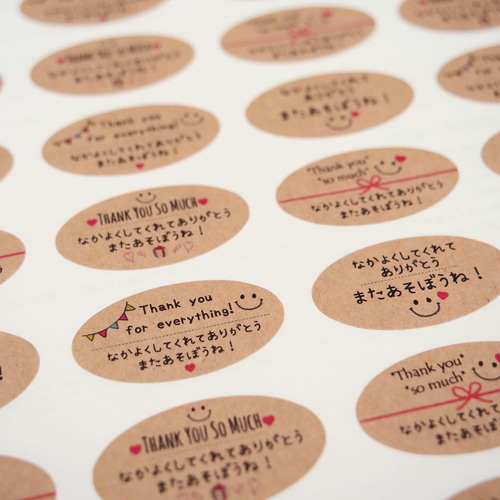 THANK YOU SO MUCH
なかよくしてくれてありがとう
またあそぼうね！
Thank you
for everything!
なかよくしてくれてありがとう
またあそぼうね！
なかよくしてくれて
ありがとう
またあそぼうね！
THANK YOU SO MUCH
なかよくしてくれてありがとう
またあそぼうね！
"Thank you"
"so much"
なかよくしてくれてありがとう
またあそぼうね！
Thank you
for everything!
なかよくしてくれてありがとう
またあそぼうね！
なかよくしてくれて
ありがとう
またあそぼうね！
THANK YOU SO MUCH
なかよくしてくれてありがとう
またあそぼうね！
"Thank you"
"so much"
なかよくしてくれてあり
またあそぼ